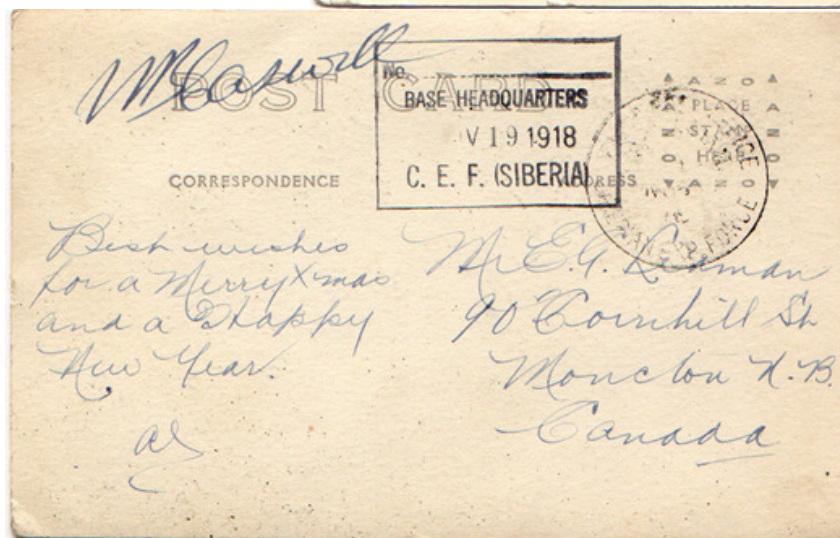 POST CARD
No.
BASE HEADQUARTERS
V 19 1918
C. E. F. (SIBERIA)
AZO
PLACE
STAMP
HERE
AZO
FORCE
CORRESPONDENCE
ADDRESS
Best wishes
for a Merry Xmas
and a Happy
New Year.
Al
Mr E.G. Leaman
90 Cornhill St
Moncton N.B.
Canada